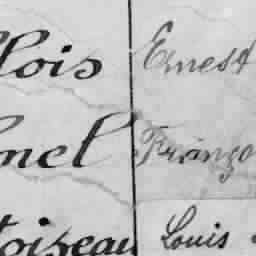 lois Ernest
nel Franço
toiseau Louis